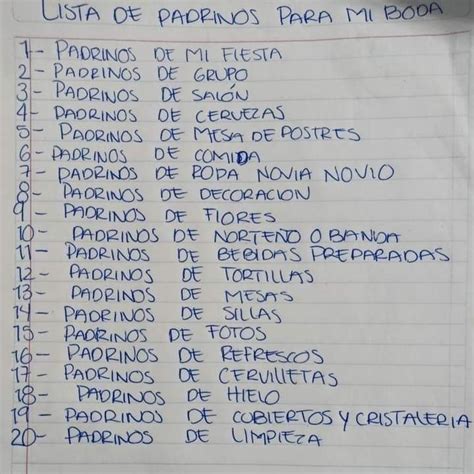 LISTA DE PADRINOS PARA MI BODA
1- PADRINOS DE MI FIESTA
2- PADRINOS DE GRUPO
3- PADRINOS DE SALÓN
4- PADRINOS DE CERVEZAS
5- PADRINOS DE MESA DE POSTRES
6- PADRINOS DE COMIDA
7- PADRINOS DE ROPA NOVIA NOVIO
8- PADRINOS DE DECORACION
9- PADRINOS DE FLORES
10- PADRINOS DE NORTEÑO O BANDA
11- PADRINOS DE BEBIDAS PREPARADAS
12- PADRINOS DE TORTILLAS
13- PADRINOS DE MESAS
14- PADRINOS DE SILLAS
15- PADRINOS DE FOTOS
16- PADRINOS DE REFRESCOS
17- PADRINOS DE CERVILLETAS
18- PADRINOS DE HIELO
19- PADRINOS DE CUBIERTOS Y CRISTALERIA
20- PADRINOS DE LIMPIEZA